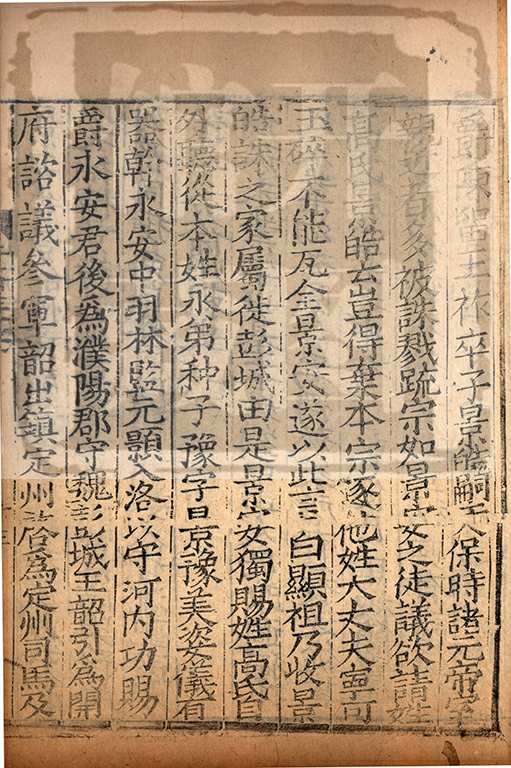 爵陳留王祚卒子景皓嗣天保時諸元帝室
親近者多被誅戮疏宗如景安之徒議欲請姓
高氏景皓云豈得棄本宗逐他姓大丈夫寧可
玉碎不能瓦全景安遂以此言白顯祖乃收景
皓誅之家屬徙彭城由是景安獨賜姓高氏自
外聽從本姓永弟种子豫字景豫美姿儀有
器幹永安中羽林監元顥入洛以守河内功賜
爵永安君後爲濮陽郡守魏彭城王韶引爲開
府諮議參軍韶出鎮定州啓爲定州司馬及